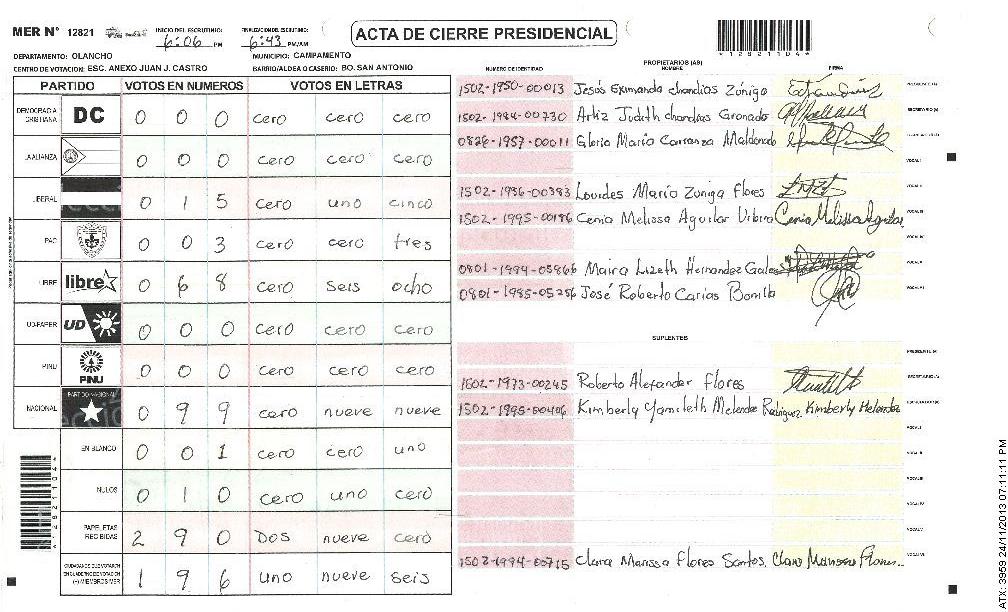 MER Nº 12821
INICIO DEL ESCRUTINIO: 6:06 PM
FINALIZACION DEL ESCRUTINIO: 6:43 PM/AM
ACTA DE CIERRE PRESIDENCIAL
*12821104*
DEPARTAMENTO: OLANCHO
MUNICIPIO: CAMPAMENTO
CENTRO DE VOTACION: ESC. ANEXO JUAN J. CASTRO
BARRIO/ALDEA O CASERIO: BO. SAN ANTONIO
PARTIDO VOTOS EN NUMEROS VOTOS EN LETRAS
DEMOCRACIA CRISTIANA DC 0 0 0 cero cero cero
LA ALIANZA 0 0 0 cero cero cero
LIBERAL 0 1 5 cero uno cinco
PAC 0 0 3 cero cero tres
LIBRE libre 0 6 8 cero seis ocho
UD-FAPER UD 0 0 0 cero cero cero
PINU PINU 0 0 0 cero cero cero
NACIONAL PARTIDO NACIONAL 0 9 9 cero nueve nueve
EN BLANCO 0 0 1 cero cero uno
NULOS 0 1 0 cero uno cero
PAPELETAS RECIBIDAS 2 9 0 Dos nueve cero
CIUDADANOS QUE VOTARON EN CUADERNO DE VOTACION (+) MIEMBROS MER 1 9 6 uno nueve seis
NUMERO DE IDENTIDAD PROPIETARIOS (AS) NOMBRE FIRMA
1502-1950-00013 Jesús Exmando chandias Zúniga
1502-1984-00730 Artiz Judith chandias Granado
0826-1957-00011 Gloria María Carranza Maldonado
1502-1986-00383 Lourdes María Zuniga Flores
1502-1995-00186 Cenia Melissa Aguilar Urbina Cenia Melissa Aguilar
0801-1994-05866 Maira Lizeth Hernandez
0801-1985-05256 José Roberto Carias Bonilla
SUPLENTES
1502-1973-00245 Roberto Alexander Flores
1502-1995-00406 Kimberly Yamileth Melendez Rodriguez Kimberly Melendez
1502-1994-00715 Clara Marissa Flores Santos. Clara Marissa Flores
ATX: 3959 24/11/2013 07:11:11 PM